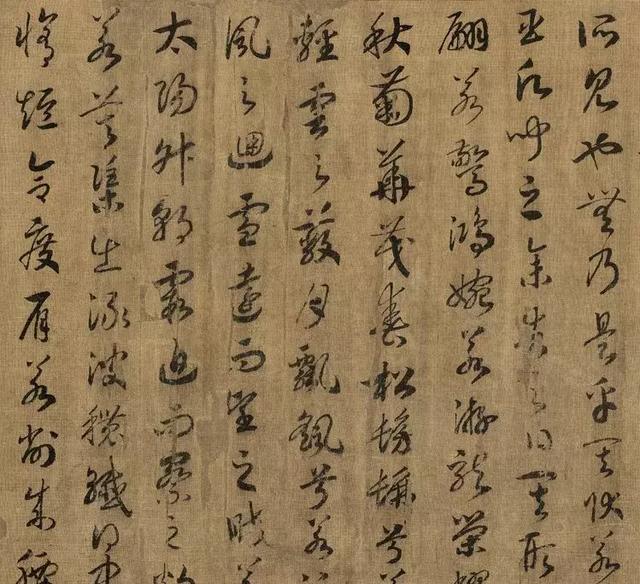 所見也無乃是乎其狀若
臣願聞之余告之曰其形
翩若驚鴻婉若游龍榮曜
秋菊華茂春松髣髴兮若
輕雲之蔽月飄飖兮若流
風之迴雪遠而望之皎若
太陽升朝霞迫而察之灼
若芙蕖出淥波穠纖得中
脩短合度肩若削成腰